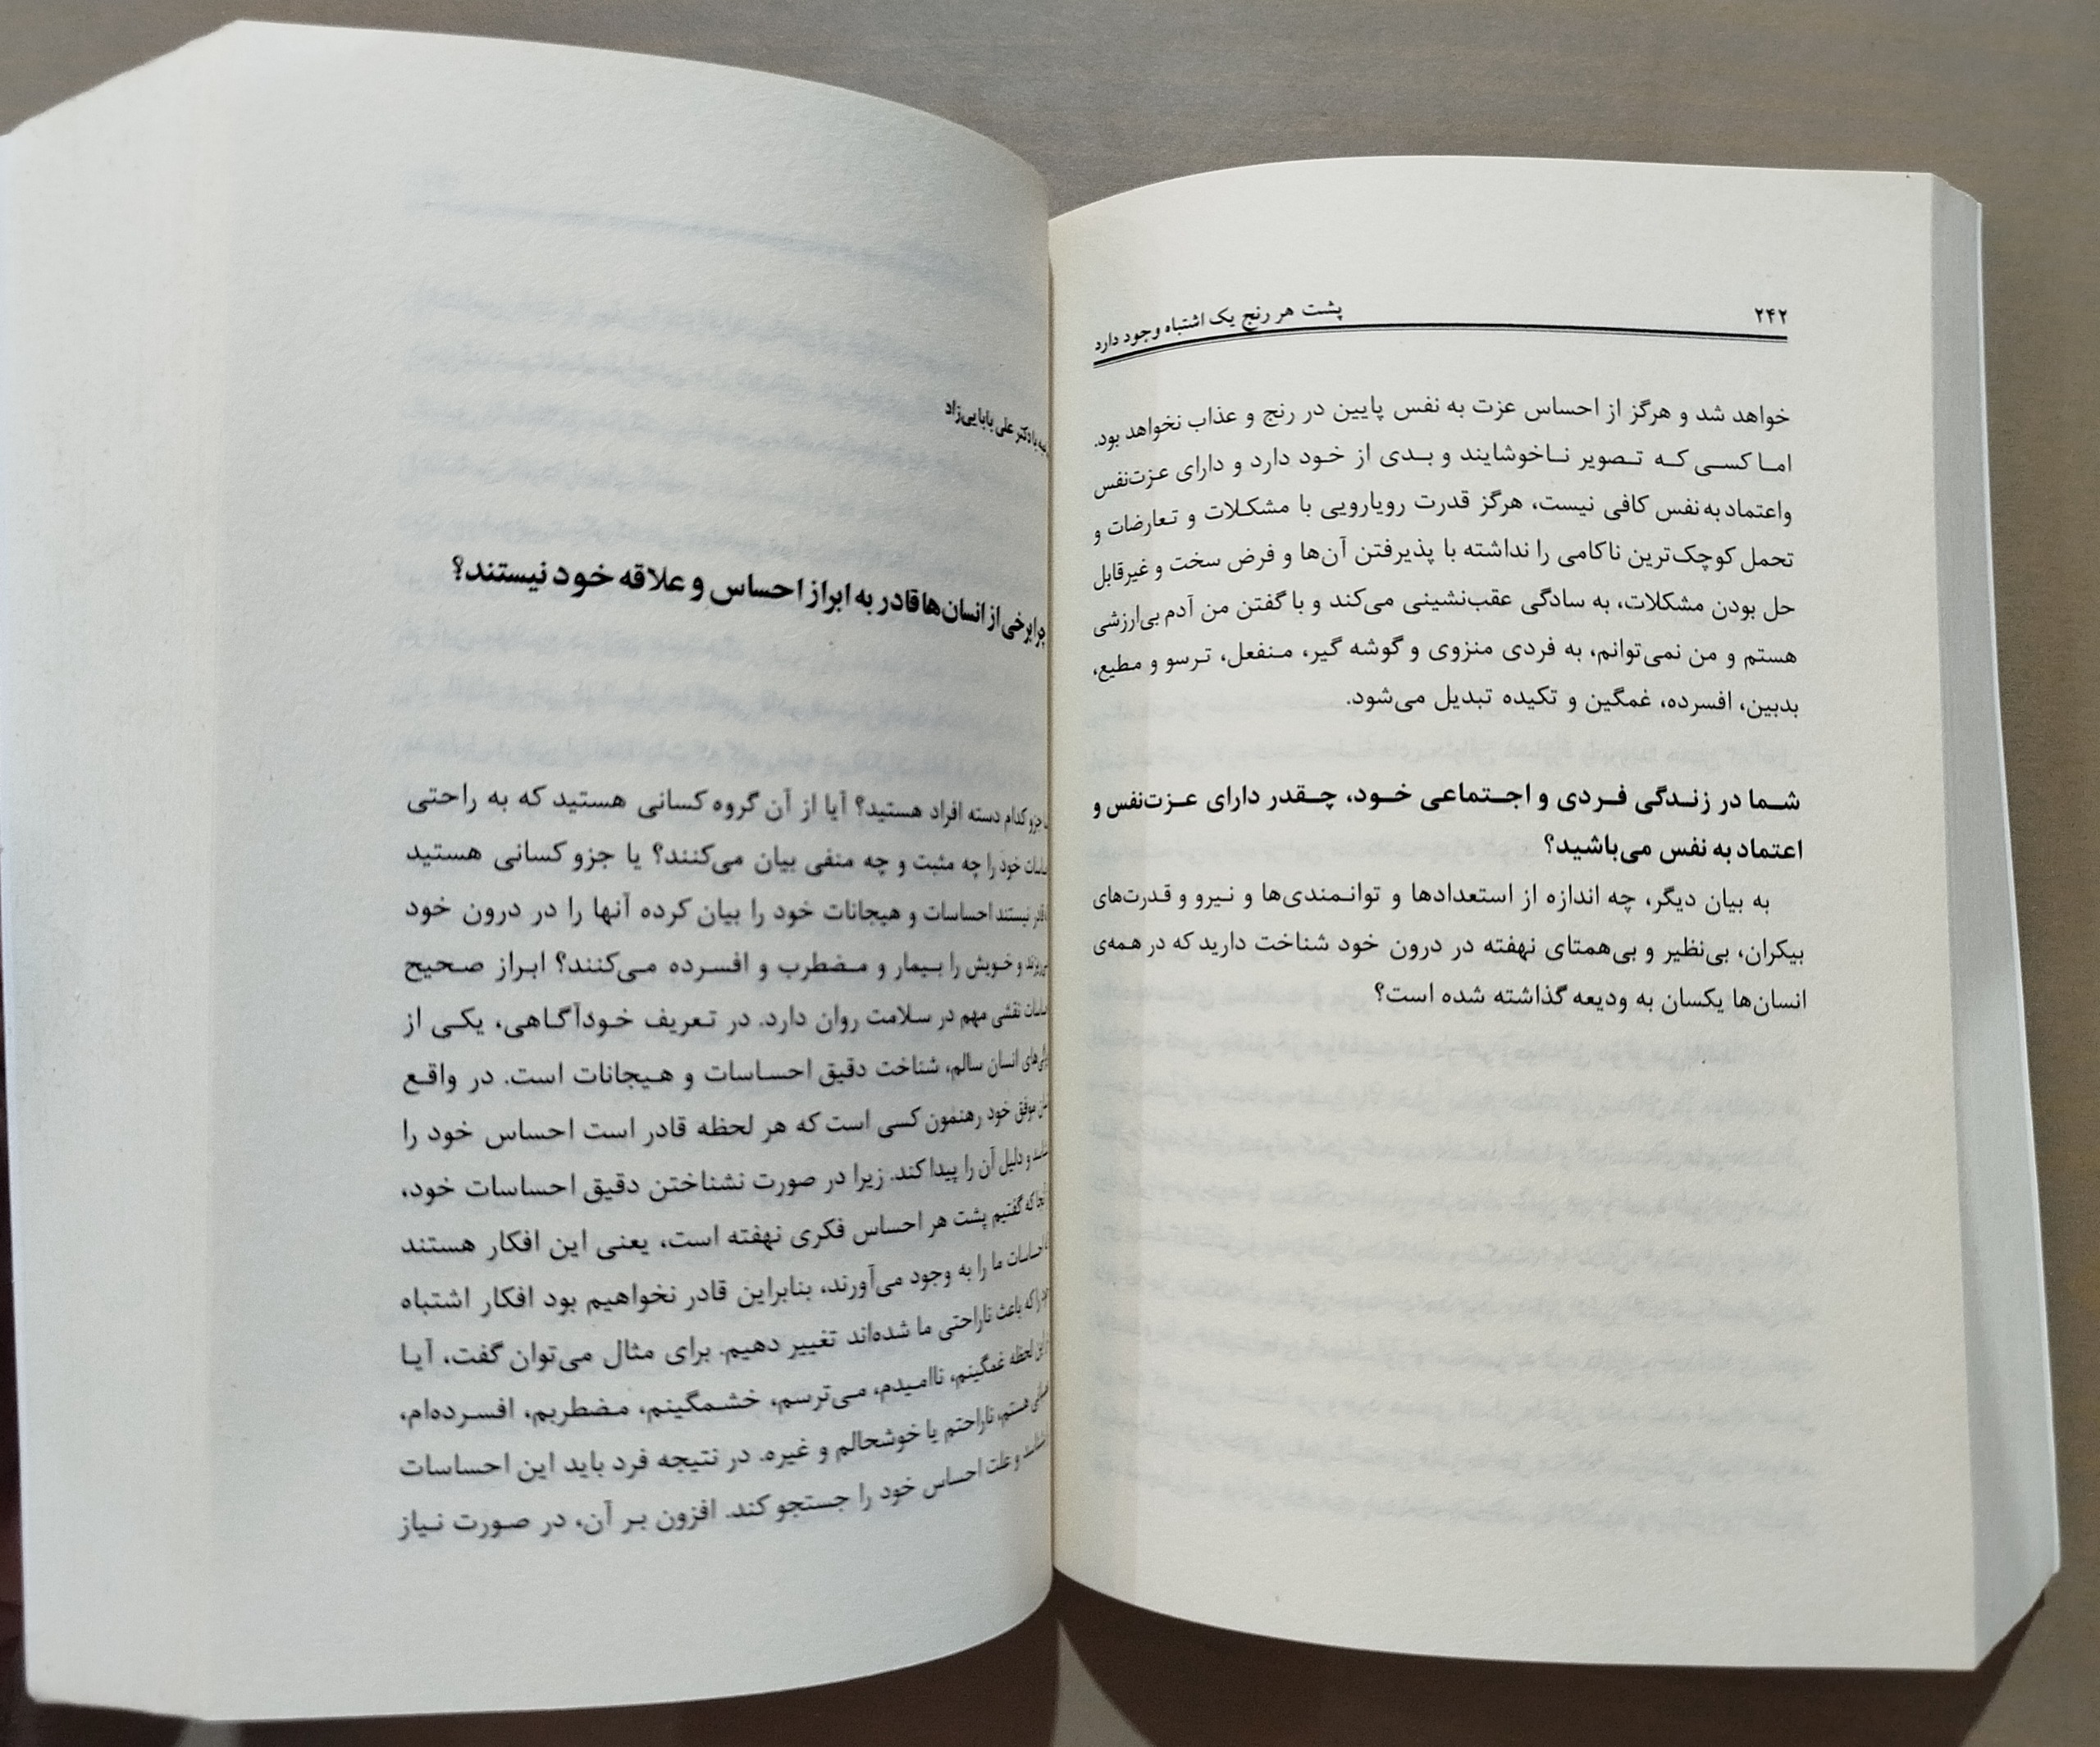 ۲۴۲
پشت هر رنج یک اشتباه وجود دارد
خواهد شد و هرگز از احساس عزت به نفس پایین در رنج و عذاب نخواهد بود.
اما کسی که تصویر ناخوشایند و بدی از خود دارد و دارای عزت‌نفس
واعتماد به نفس کافی نیست، هرگز قدرت رویارویی با مشکلات و تعارضات و
تحمل کوچک‌ترین ناکامی را نداشته با پذیرفتن آن‌ها و فرض سخت و غیرقابل
حل بودن مشکلات، به سادگی عقب‌نشینی می‌کند و با گفتن من آدم بی‌ارزشی
هستم و من نمی‌توانم، به فردی منزوی و گوشه گیر، منفعل، ترسو و مطیع،
بدبین، افسرده، غمگین و تکیده تبدیل می‌شود.
شما در زندگی فردی و اجتماعی خود، چقدر دارای عزت‌نفس و
اعتماد به نفس می‌باشید؟
به بیان دیگر، چه اندازه از استعدادها و توانمندی‌ها و نیرو و قدرت‌های
بیکران، بی‌نظیر و بی‌همتای نهفته در درون خود شناخت دارید که در همه‌ی
انسان‌ها یکسان به ودیعه گذاشته شده است؟
با دکتر علی بابایی‌زاد
چرا برخی از انسان‌ها قادر به ابراز احساس و علاقه خود نیستند؟
جزو کدام دسته افراد هستید؟ آیا از آن گروه کسانی هستید که به راحتی
خود را چه مثبت و چه منفی بیان می‌کنند؟ یا جزو کسانی هستید
قادر نیستند احساسات و هیجانات خود را بیان کرده آنها را در درون خود
و خویش را بیمار و مضطرب و افسرده می‌کنند؟ ابراز صحیح
نقشی مهم در سلامت روان دارد. در تعریف خودآگاهی، یکی از
انسان سالم، شناخت دقیق احساسات و هیجانات است. در واقع
موفق خود رهنمون کسی است که هر لحظه قادر است احساس خود را
و دلیل آن را پیدا کند. زیرا در صورت نشناختن دقیق احساسات خود،
که گفتیم پشت هر احساس فکری نهفته است، یعنی این افکار هستند
احساسات ما را به وجود می‌آورند، بنابراین قادر نخواهیم بود افکار اشتباه
را که باعث ناراحتی ما شده‌اند تغییر دهیم. برای مثال می‌توان گفت، آیا
این لحظه غمگینم، ناامیدم، می‌ترسم، خشمگینم، مضطربم، افسرده‌ام،
هستم، ناراحتم یا خوشحالم و غیره. در نتیجه فرد باید این احساسات
و علت احساس خود را جستجو کند. افزون بر آن، در صورت نیاز